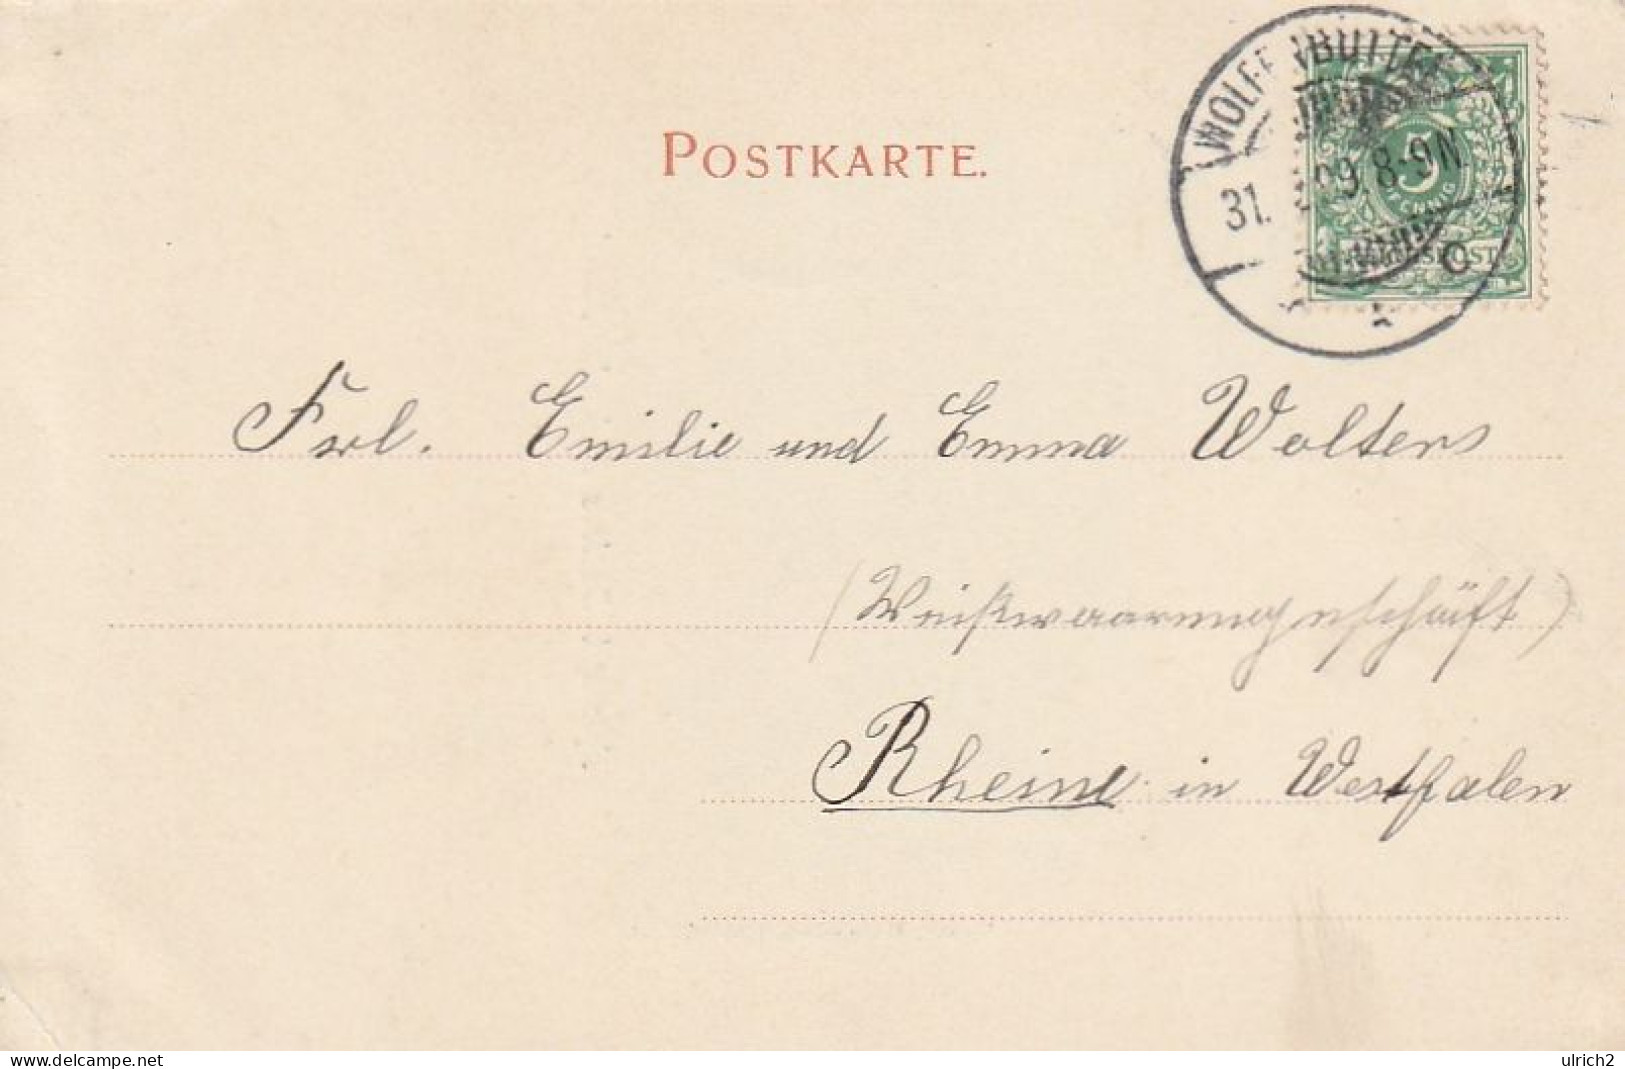 WOLFENBÜTTEL
31. 99. 8-9N
5
PFENNIG
REICHSPOST
POSTKARTE.
Frl. Emilie und Emma Wolters
(Weißwaarengeschäft)
Rheine in Westfalen
www.delcampe.net
ulrich2